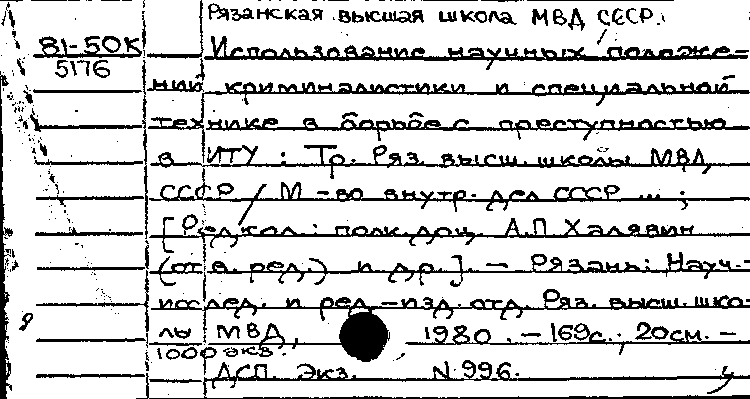 Рязанская высшая школа МВД СССР.
81-50К Использование научных положе-
5176
ний криминалистики и специальной
технике в борьбе с преступностью
в ИТУ : Тр. Ряз. высш. школы МВД
СССР / М-во внутр. дел СССР ... ;
[Редкол.: полк. доц. А.П Халявин
(отв. ред.) и др.]. - Рязань: Науч.-
исслед. и ред.-изд. отд. Ряз. высш. шко-
лы МВД, 1980. - 169с.; 20см. -
1000 экз.
ДСП. Экз. N 996.